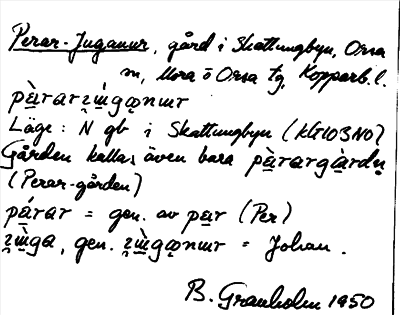 Perar-Juganur, gård i Skattungbyn, Orsa
sn, Mora o Orsa tg, Kopparb. l.
Läge: N gb i Skattungbyn (kGI03N0)
Gården kallas även bara pä̀rargàrdn̥
(Perar-gården)
pä́rar = gen. av pär (Per)
gen. = Johan.
B. Granholm 1950